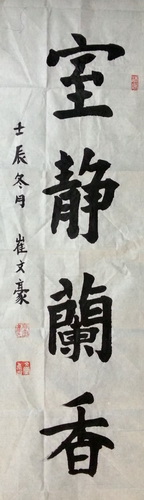 室静蘭香
壬辰冬月 崔文豪